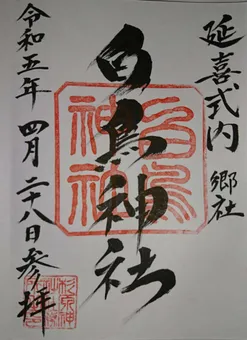 延喜式内 郷社
白鳥神社
令和五年 四月二十八日参拝
白鳥
神社